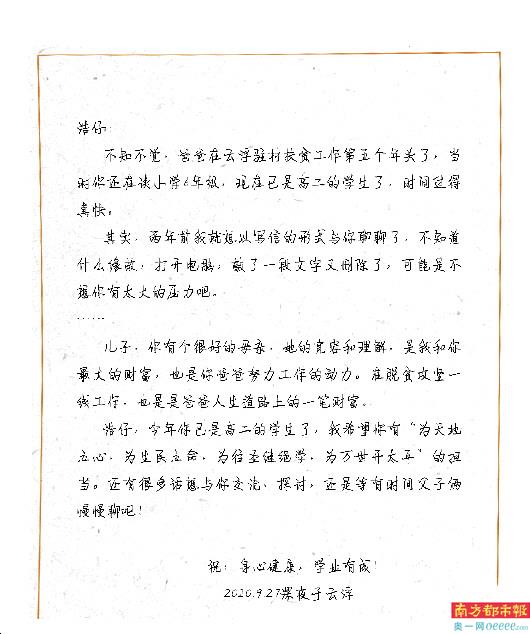 浩仔:
不知不觉，爸爸在云浮驻村扶贫工作第五个年头了，当
时你还在读小学6年级，现在已是高二的学生了，时间过得
真快。
其实，两年前我就想以写信的形式与你聊聊了，不知道
什么缘故，打开电脑，敲了一段文字又删除了，可能是不
想你有太大的压力吧。
……
儿子，你有个很好的母亲，她的宽容和理解，是我和你
最大的财富，也是你爸爸努力工作的动力。在脱贫攻坚一
线工作，也是是爸爸人生道路上的一笔财富。
浩仔，今年你已是高二的学生了，我希望你有“为天地
立心，为生民立命，为往圣继绝学，为万世开太平”的担
当。还有很多话想与你交流、探讨，还是等有时间父子俩
慢慢聊吧！
祝：身心健康，学业有成！
2020.9.27深夜于云浮
南方都市报
奥一网oeeee.com